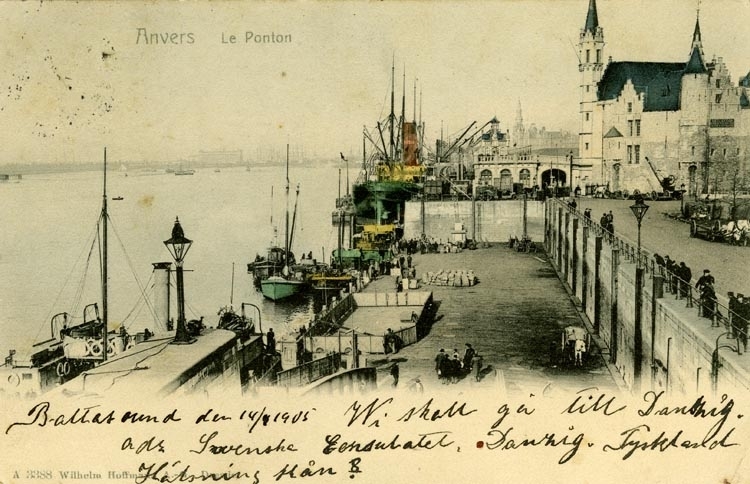 Anvers Le Ponton
Baltasound den 14/7 1905 Vi skall gå till Danzig.
adr Svenska Consulatet. Danzig. Tyskland
A 3388 Wilhelm Hoffm
Hälsning från